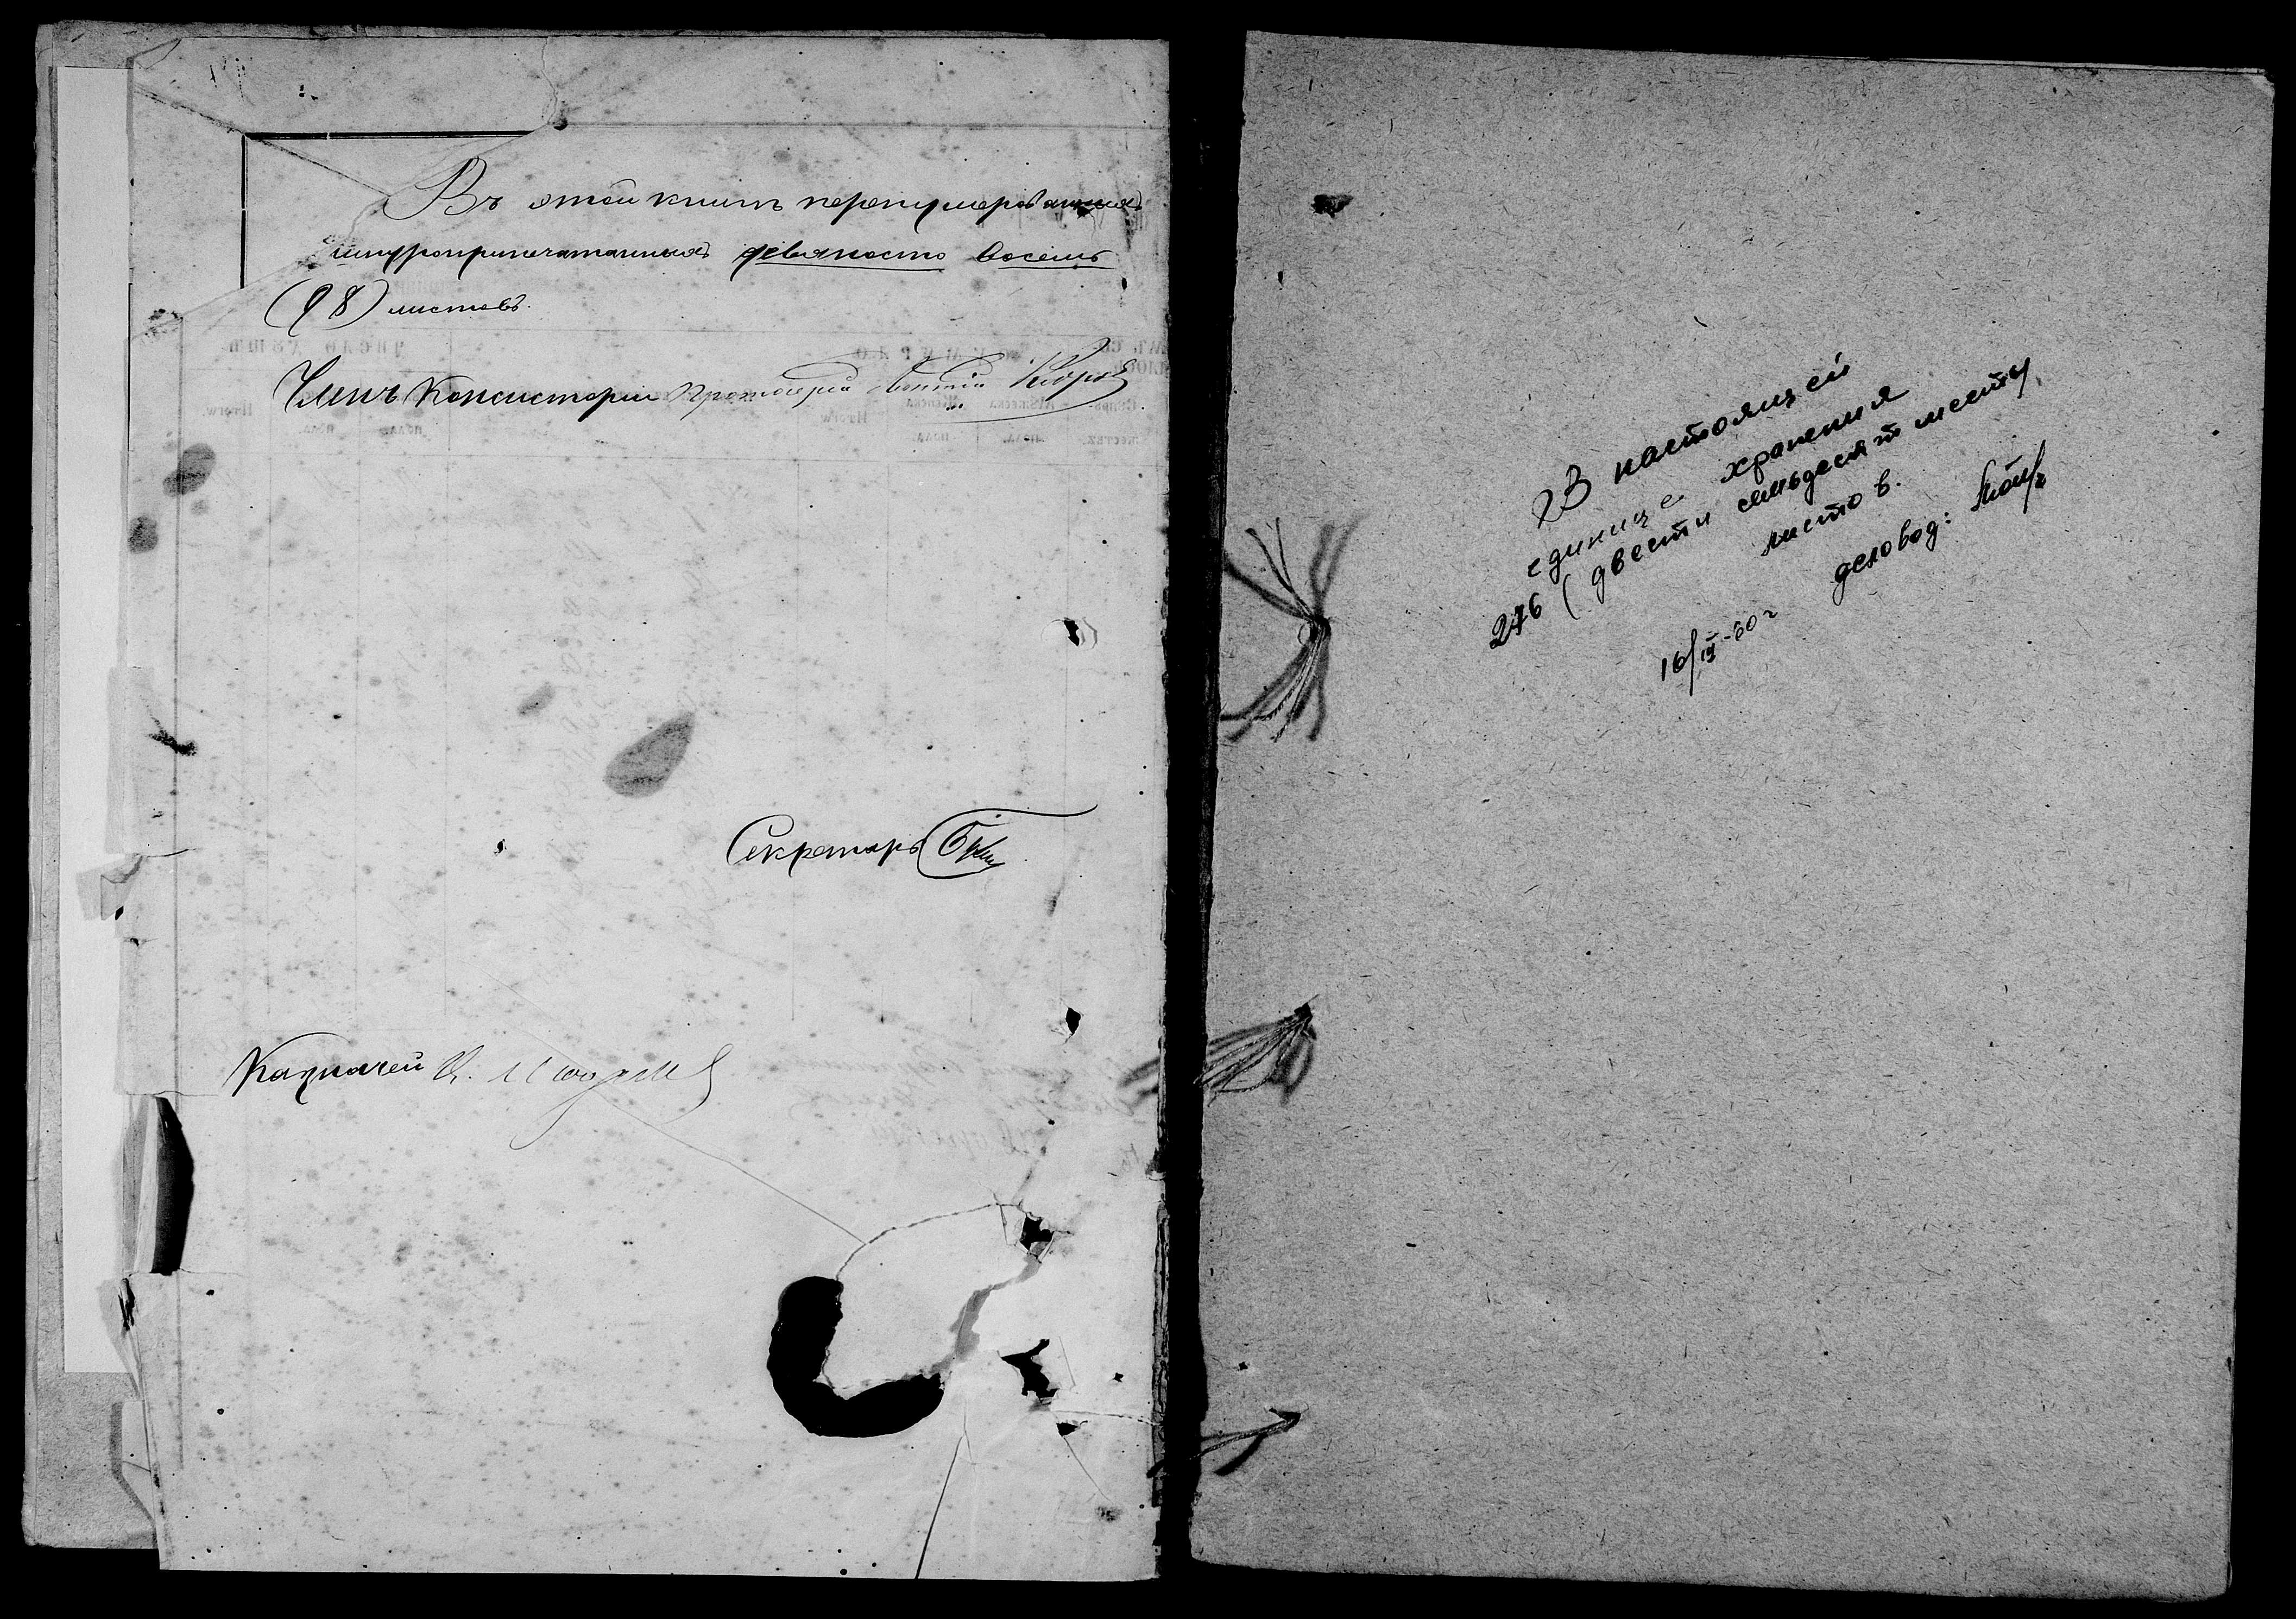 Въ этой книгѣ перенумерованныхъ
шнуропрпечатанныхъ девяносто восемь
(98) листовъ.
Членъ Консисторіи Протоіерей
Секретарь
Казначей
В настоящей
единице хранения
276 (двести семьдесят шесть)
листов.
16/IV-60 г деловод: